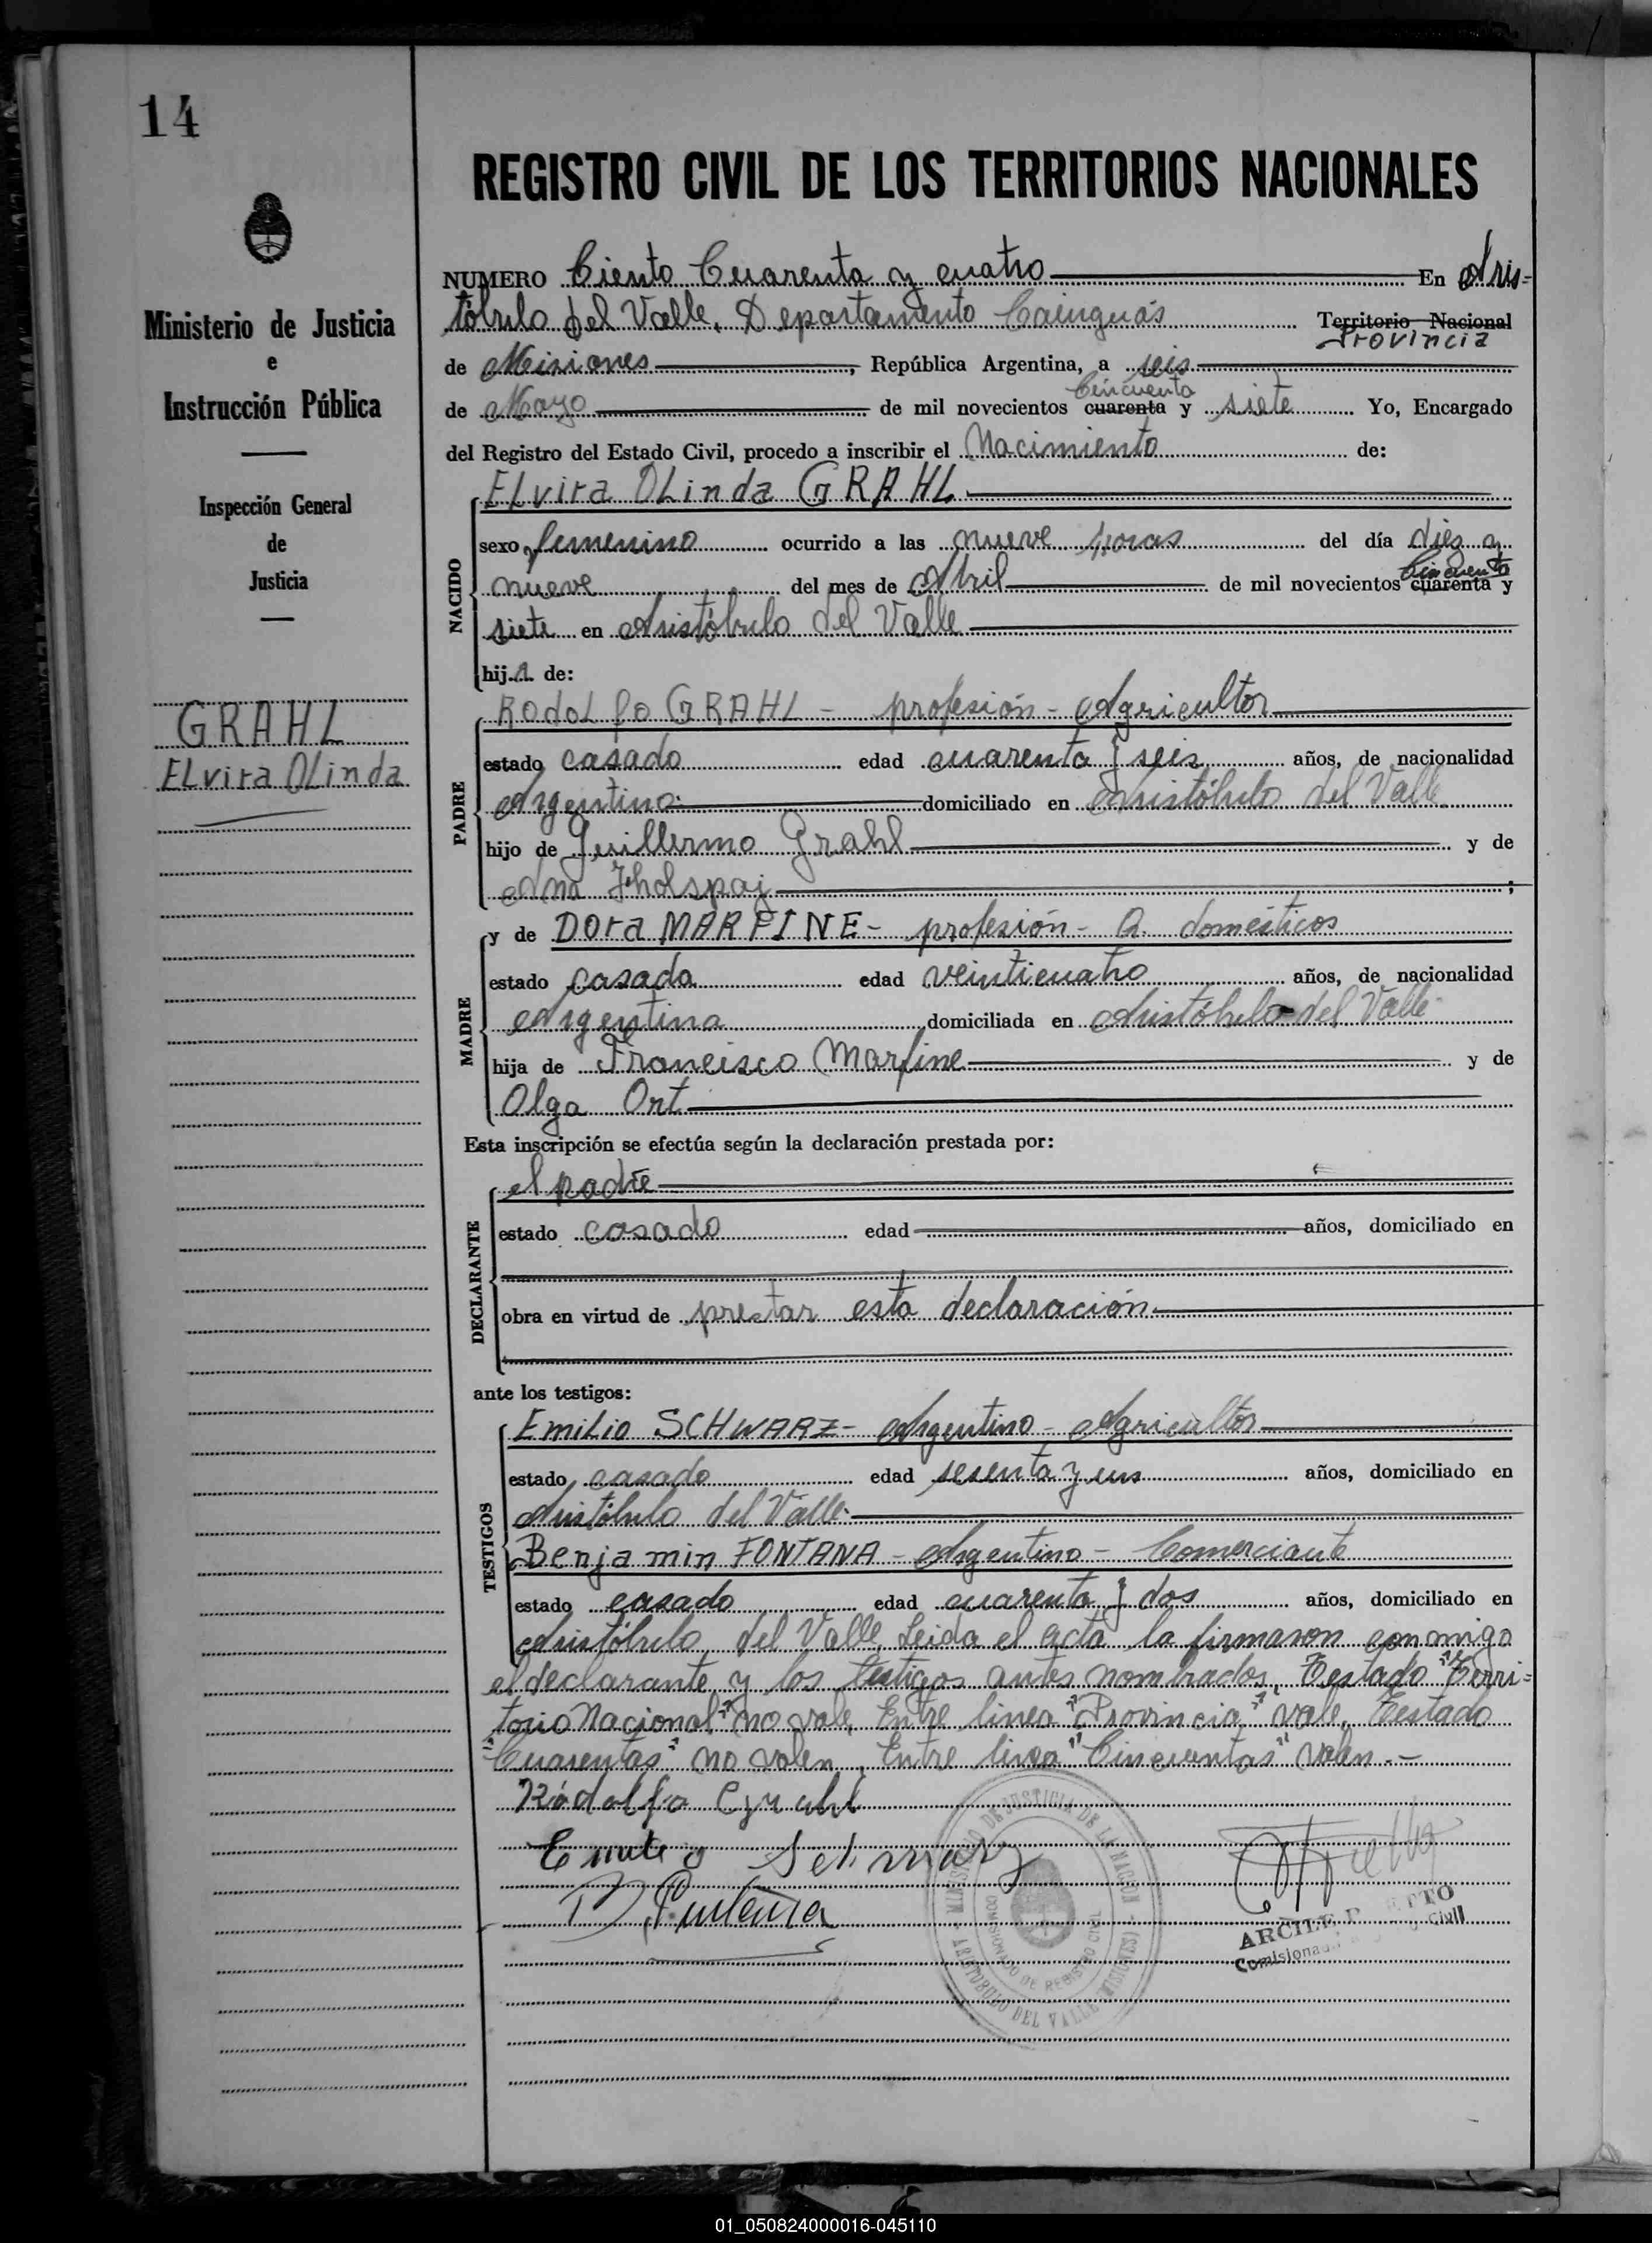 14
REGISTRO CIVIL DE LOS TERRITORIOS NACIONALES
Ministerio de Justicia
e
Instrucción Pública
Inspección General
de
Justicia
GRAHL
ELvira OLinda
NUMERO Ciento Cuarenta y cuatro En Aris=
tóbulo del Valle, Departamento Cainguás Territorio Nacional
Provincia
de Misiones, República Argentina, a seis
Cincuenta
de Mayo de mil novecientos cuarenta y siete Yo, Encargado
del Registro del Estado Civil, procedo a inscribir el Nacimiento de:
NACIDO
ELvira OLinda GRAHL
sexo femenino ocurrido a las nueve horas del día diez y
Cincuenta
nueve del mes de Abril de mil novecientos cuarenta y
siete en Aristóbulo del Valle
hija de:
PADRE
RodoLfo GRAHL - profesión - Agricultor
estado casado edad cuarenta y seis años, de nacionalidad
Argentino domiciliado en Aristóbulo del Valle
hijo de Guillermo Grahl y de
Ana ;
MADRE
y de Dora MARFINE - profesión - Q. domésticos
estado casada edad veinticuatro años, de nacionalidad
Argentina domiciliada en Aristóbulo del Valle
hija de Francisco Marfine y de
Olga Ort
Esta inscripción se efectúa según la declaración prestada por:
DECLARANTE
el padre
estado casado edad años, domiciliado en
obra en virtud de prestar esta declaración
ante los testigos:
TESTIGOS
EmiLio SCHWARZ - Argentino - Agricultor
estado casado edad sesenta y un años, domiciliado en
Aristóbulo del Valle
Benjamin FONTANA - Argentino - Comerciante
estado casado edad cuarenta y dos años, domiciliado en
Aristóbulo del Valle, Leida el acta la firmaron conmigo
el declarante y los testigos antes nombrados, Testado "Terri=
torio Nacional" no vale, Entre linea "Provincia" vale, Testado
"Cuarentas" no valen, Entre linea "Cincuentas" valen.-
Ródolfo Grahl
Schwarz
B. Funtana
MINISTERIO DE JUSTICIA DE LA NACION - ARISTOBULO DEL VALLE (MISIONES)
COMISIONADO DE REGISTRO CIVIL
Civil
01_050824000016-045110